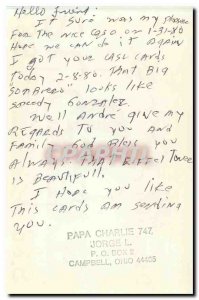 Hello friend:
It sure was my pleasure
For the nice QSO on 1/31/80
Hope we can do it again
I got your QSL cards
today 2-8-80. That Big
Sombrero" looks like
speedy Gonzalez.
Well André give my
Regards to you and
Family God Bless you
Always that Eiffel Tower
is Beautifull.
I Hope you like
This cards am sending
you.
PAPA CHARLIE 747
JORGE L.
P. O. BOX 2
CAMPBELL, OHIO 44405